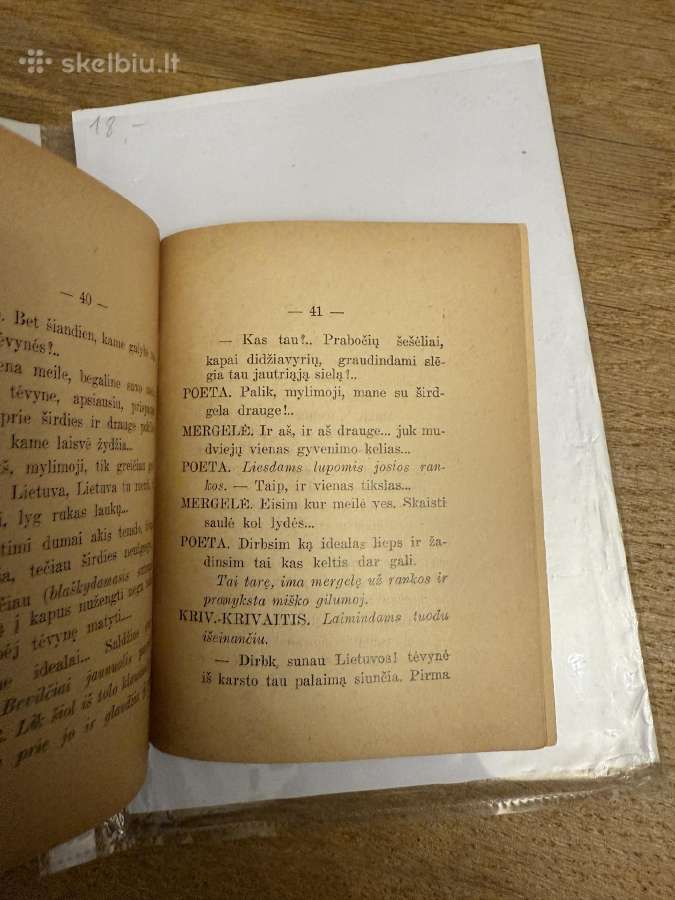 skelbiu.lt
18,-
— 40 —
. Bet šiandien, kame galybė
ėvynės!..
ena meile, begaline savo
tėvyne, apsiausiu,
prie širdies ir drauge
kame laisvė žydžia...
š, mylimoji, tik greičiau
Lietuva, Lietuva tu
i, lyg rukas laukų...
timi dumai akis
ša, tečiau širdies
čiau (blaškydamasis
į kapus nužengti
ėj tėvynę matyti...
ne idealai... Saldžiai
Bevilčiai jaunuolis
. Lik šiol iš tolo
prie jo ir glaudžia
— 41 —
— Kas tau?.. Prabočių šešėliai,
kapai didžiavyrių, graudindami slė-
gia tau jautriąją sielą?..
POETA. Palik, mylimoji, mane su šird-
gela drauge!..
MERGELĖ. Ir aš, ir aš drauge... juk mu-
dviejų vienas gyvenimo kelias...
POETA. Liesdams lupomis josios ran-
kos. — Taip, ir vienas tikslas...
MERGELĖ. Eisim kur meilė ves. Skaisti
saulė kol lydės...
POETA. Dirbsim ką idealas lieps ir ža-
dinsim tai kas keltis dar gali.
Tai tarę, ima mergelę už rankos ir
pranyksta miško gilumoj.
KRIV.-KRIVAITIS. Laimindams tuodu
išeinančiu.
— Dirbk, sunau Lietuvos! tėvynė
iš karsto tau palaimą siunčia. Pirma